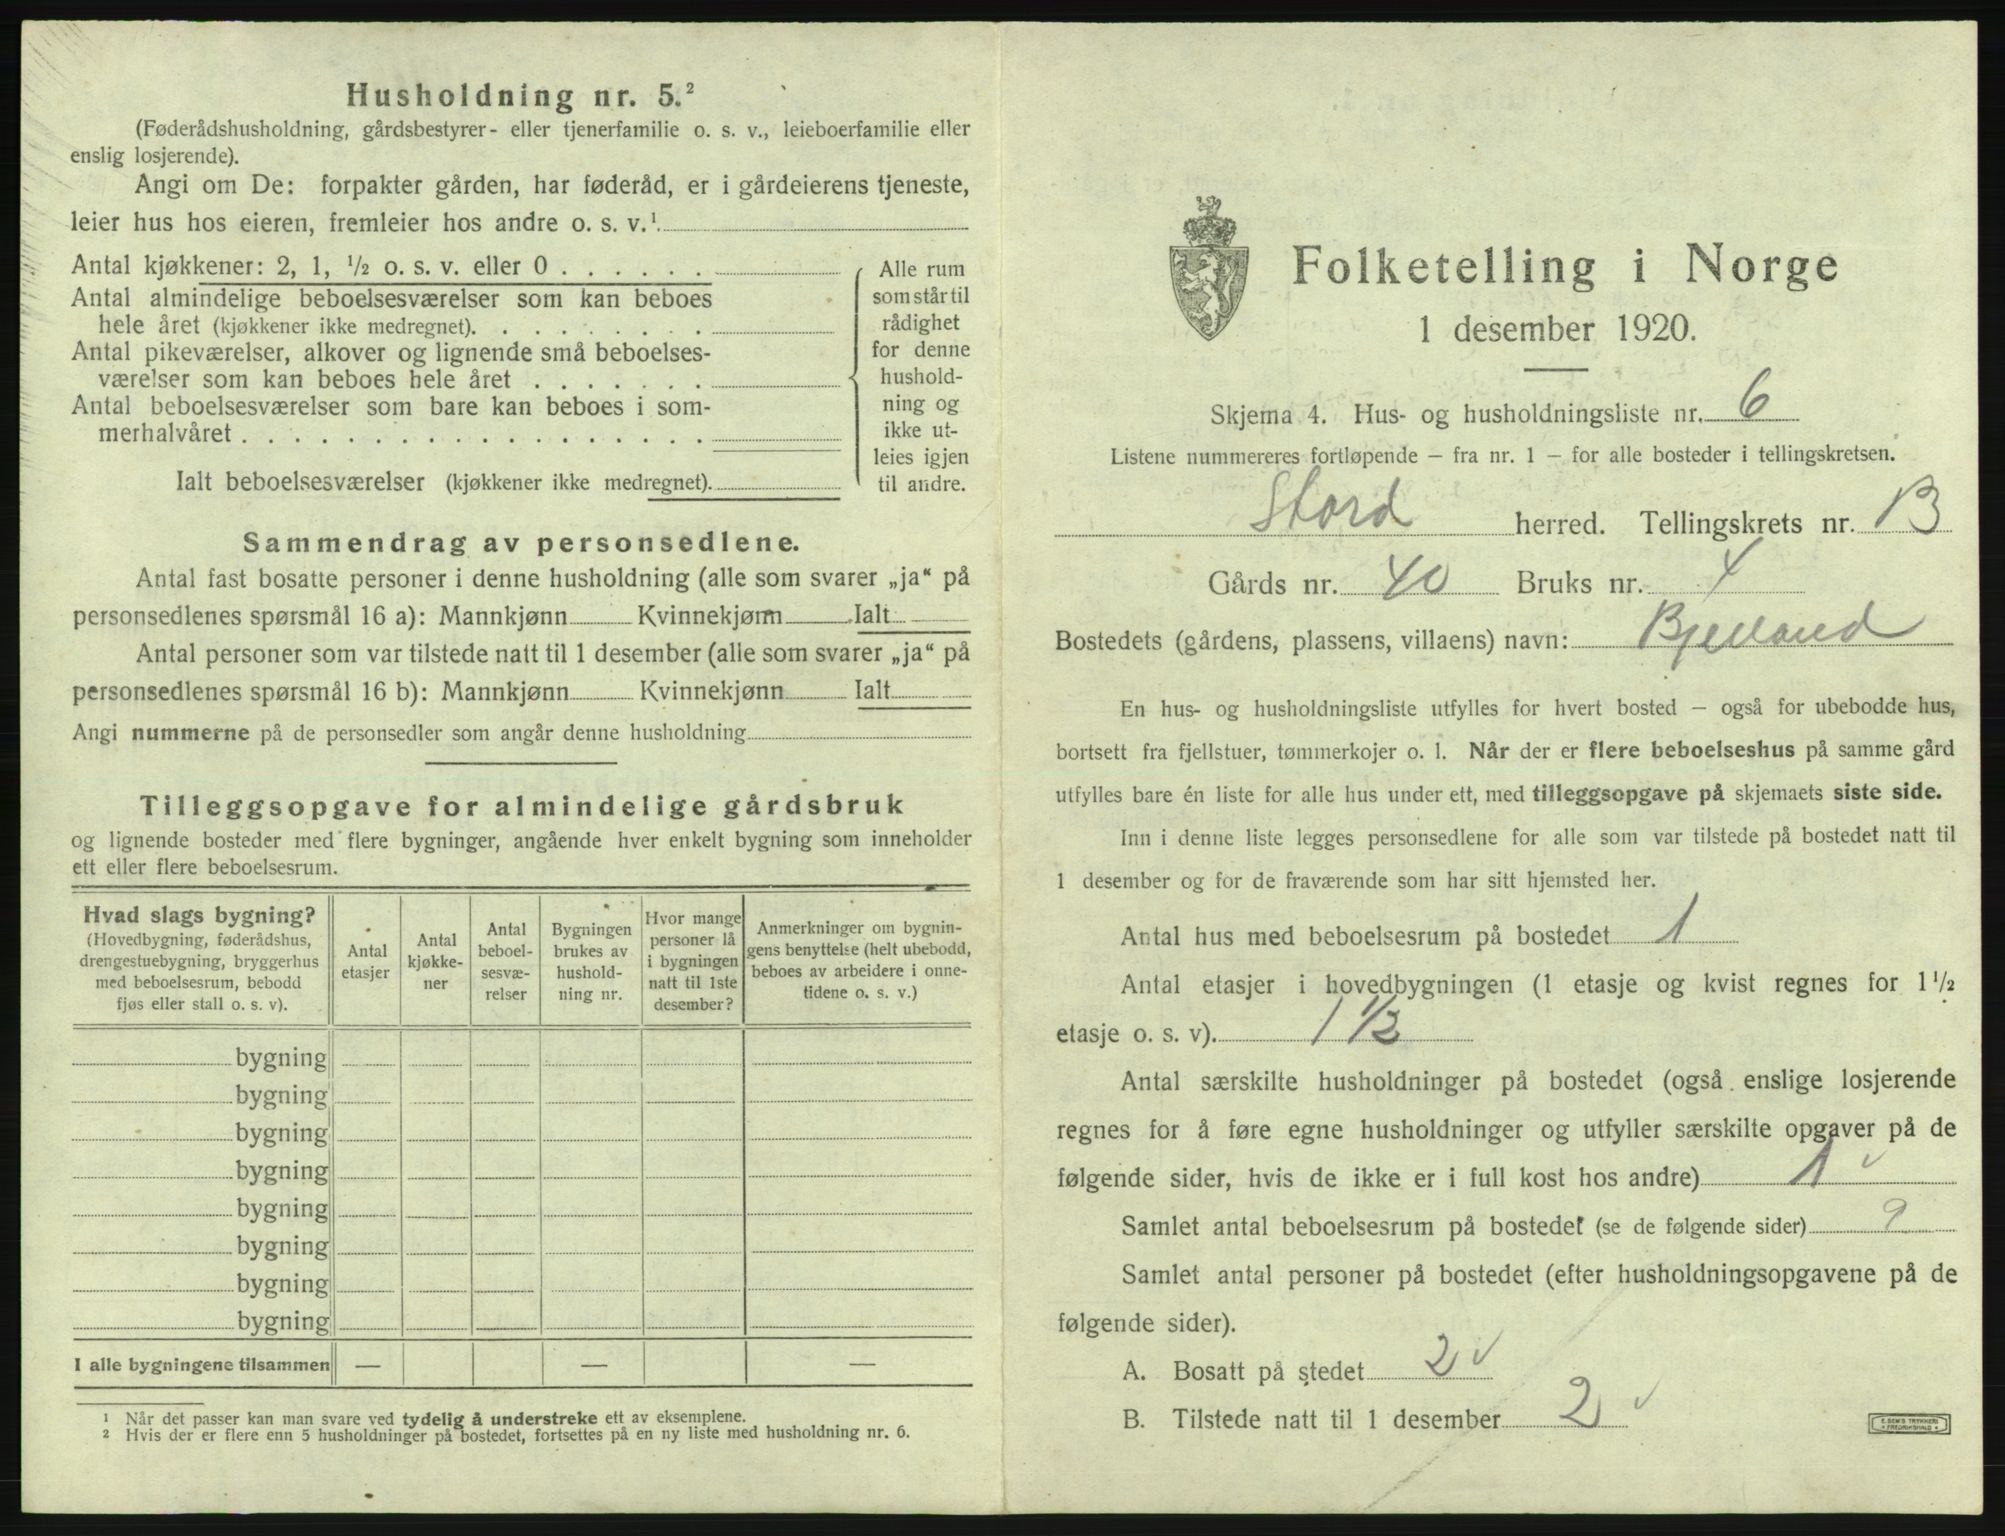 Husholdning nr. 5.²
(Føderådshusholdning, gårdsbestyrer- eller tjenerfamilie o. s. v., leieboerfamilie eller
enslig losjerende).
Angi om De: forpakter gården, har føderåd, er i gårdeierens tjeneste,
leier hus hos eieren, fremleier hos andre o. s. v.¹
Antal kjøkkener: 2, 1, ½ o. s. v. eller 0 . . . . . .
Antal almindelige beboelsesværelser som kan beboes
hele året (kjøkkener ikke medregnet). . . . . . . . .
Antal pikeværelser, alkover og lignende små beboelses-
værelser som kan beboes hele året . . . . . . .
Antal beboelsesværelser som bare kan beboes i som-
merhalvåret . . . . . . . . . . . . . . . . . .
Ialt beboelsesværelser (kjøkkener ikke medregnet).
Alle rum
som står til
rådighet
for denne
hushold-
ning og
ikke ut-
leies igjen
til andre.
Sammendrag av personsedlene.
Antal fast bosatte personer i denne husholdning (alle som svarer „ja“ på
personsedlenes spørsmål 16 a): Mannkjønn Kvinnekjønn Ialt
Antal personer som var tilstede natt til 1 desember (alle som svarer „ja“ på
personsedlenes spørsmål 16 b): Mannkjønn Kvinnekjønn Ialt
Angi nummerne på de personsedler som angår denne husholdning
Tilleggsopgave for almindelige gårdsbruk
og lignende bosteder med flere bygninger, angående hver enkelt bygning som inneholder
ett eller flere beboelsesrum.
Hvad slags bygning?
(Hovedbygning, føderådshus,
drengestuebygning, bryggerhus
med beboelsesrum, bebodd
fjøs eller stall o. s. v).
Antal
etasjer
Antal
kjøkke-
ner
Antal
beboel-
sesvæ-
relser
Bygningen
brukes av
hushold-
ning nr.
Hvor mange
personer lå
i bygningen
natt til 1ste
desember?
Anmerkninger om bygnin-
gens benyttelse (helt ubebodd,
beboes av arbeidere i onne-
tidene o. s. v.)
bygning
bygning
bygning
bygning
bygning
bygning
bygning
bygning
I alle bygningene tilsammen — — —
1 Når det passer kan man svare ved tydelig å understreke ett av eksemplene.
2 Hvis der er flere enn 5 husholdninger på bostedet, fortsettes på en ny liste med husholdning nr. 6.
Folketelling i Norge
1 desember 1920.
Skjema 4. Hus- og husholdningsliste nr. 6
Listene nummereres fortløpende – fra nr. 1 – for alle bosteder i tellingskretsen.
Stord herred. Tellingskrets nr. 13
Gårds nr. 40 Bruks nr. 4
Bostedets (gårdens, plassens, villaens) navn: Bjelland
En hus- og husholdningsliste utfylles for hvert bosted – også for ubebodde hus,
bortsett fra fjellstuer, tømmerkojer o. l. Når der er flere beboelseshus på samme gård
utfylles bare én liste for alle hus under ett, med tilleggsopgave på skjemaets siste side.
Inn i denne liste legges personsedlene for alle som var tilstede på bostedet natt til
1 desember og for de fraværende som har sitt hjemsted her.
Antal hus med beboelsesrum på bostedet 1
Antal etasjer i hovedbygningen (1 etasje og kvist regnes for 1½
etasje o. s. v). 1 ½
Antal særskilte husholdninger på bostedet (også enslige losjerende
regnes for å føre egne husholdninger og utfyller særskilte opgaver på de
følgende sider, hvis de ikke er i full kost hos andre) 1 ✓
Samlet antal beboelsesrum på bostedet (se de følgende sider) 9
Samlet antal personer på bostedet (efter husholdningsopgavene på de
følgende sider).
A. Bosatt på stedet 2 ✓
B. Tilstede natt til 1 desember 2 ✓
E. SEM'S TRYKKERI
FREDRIKSHALD